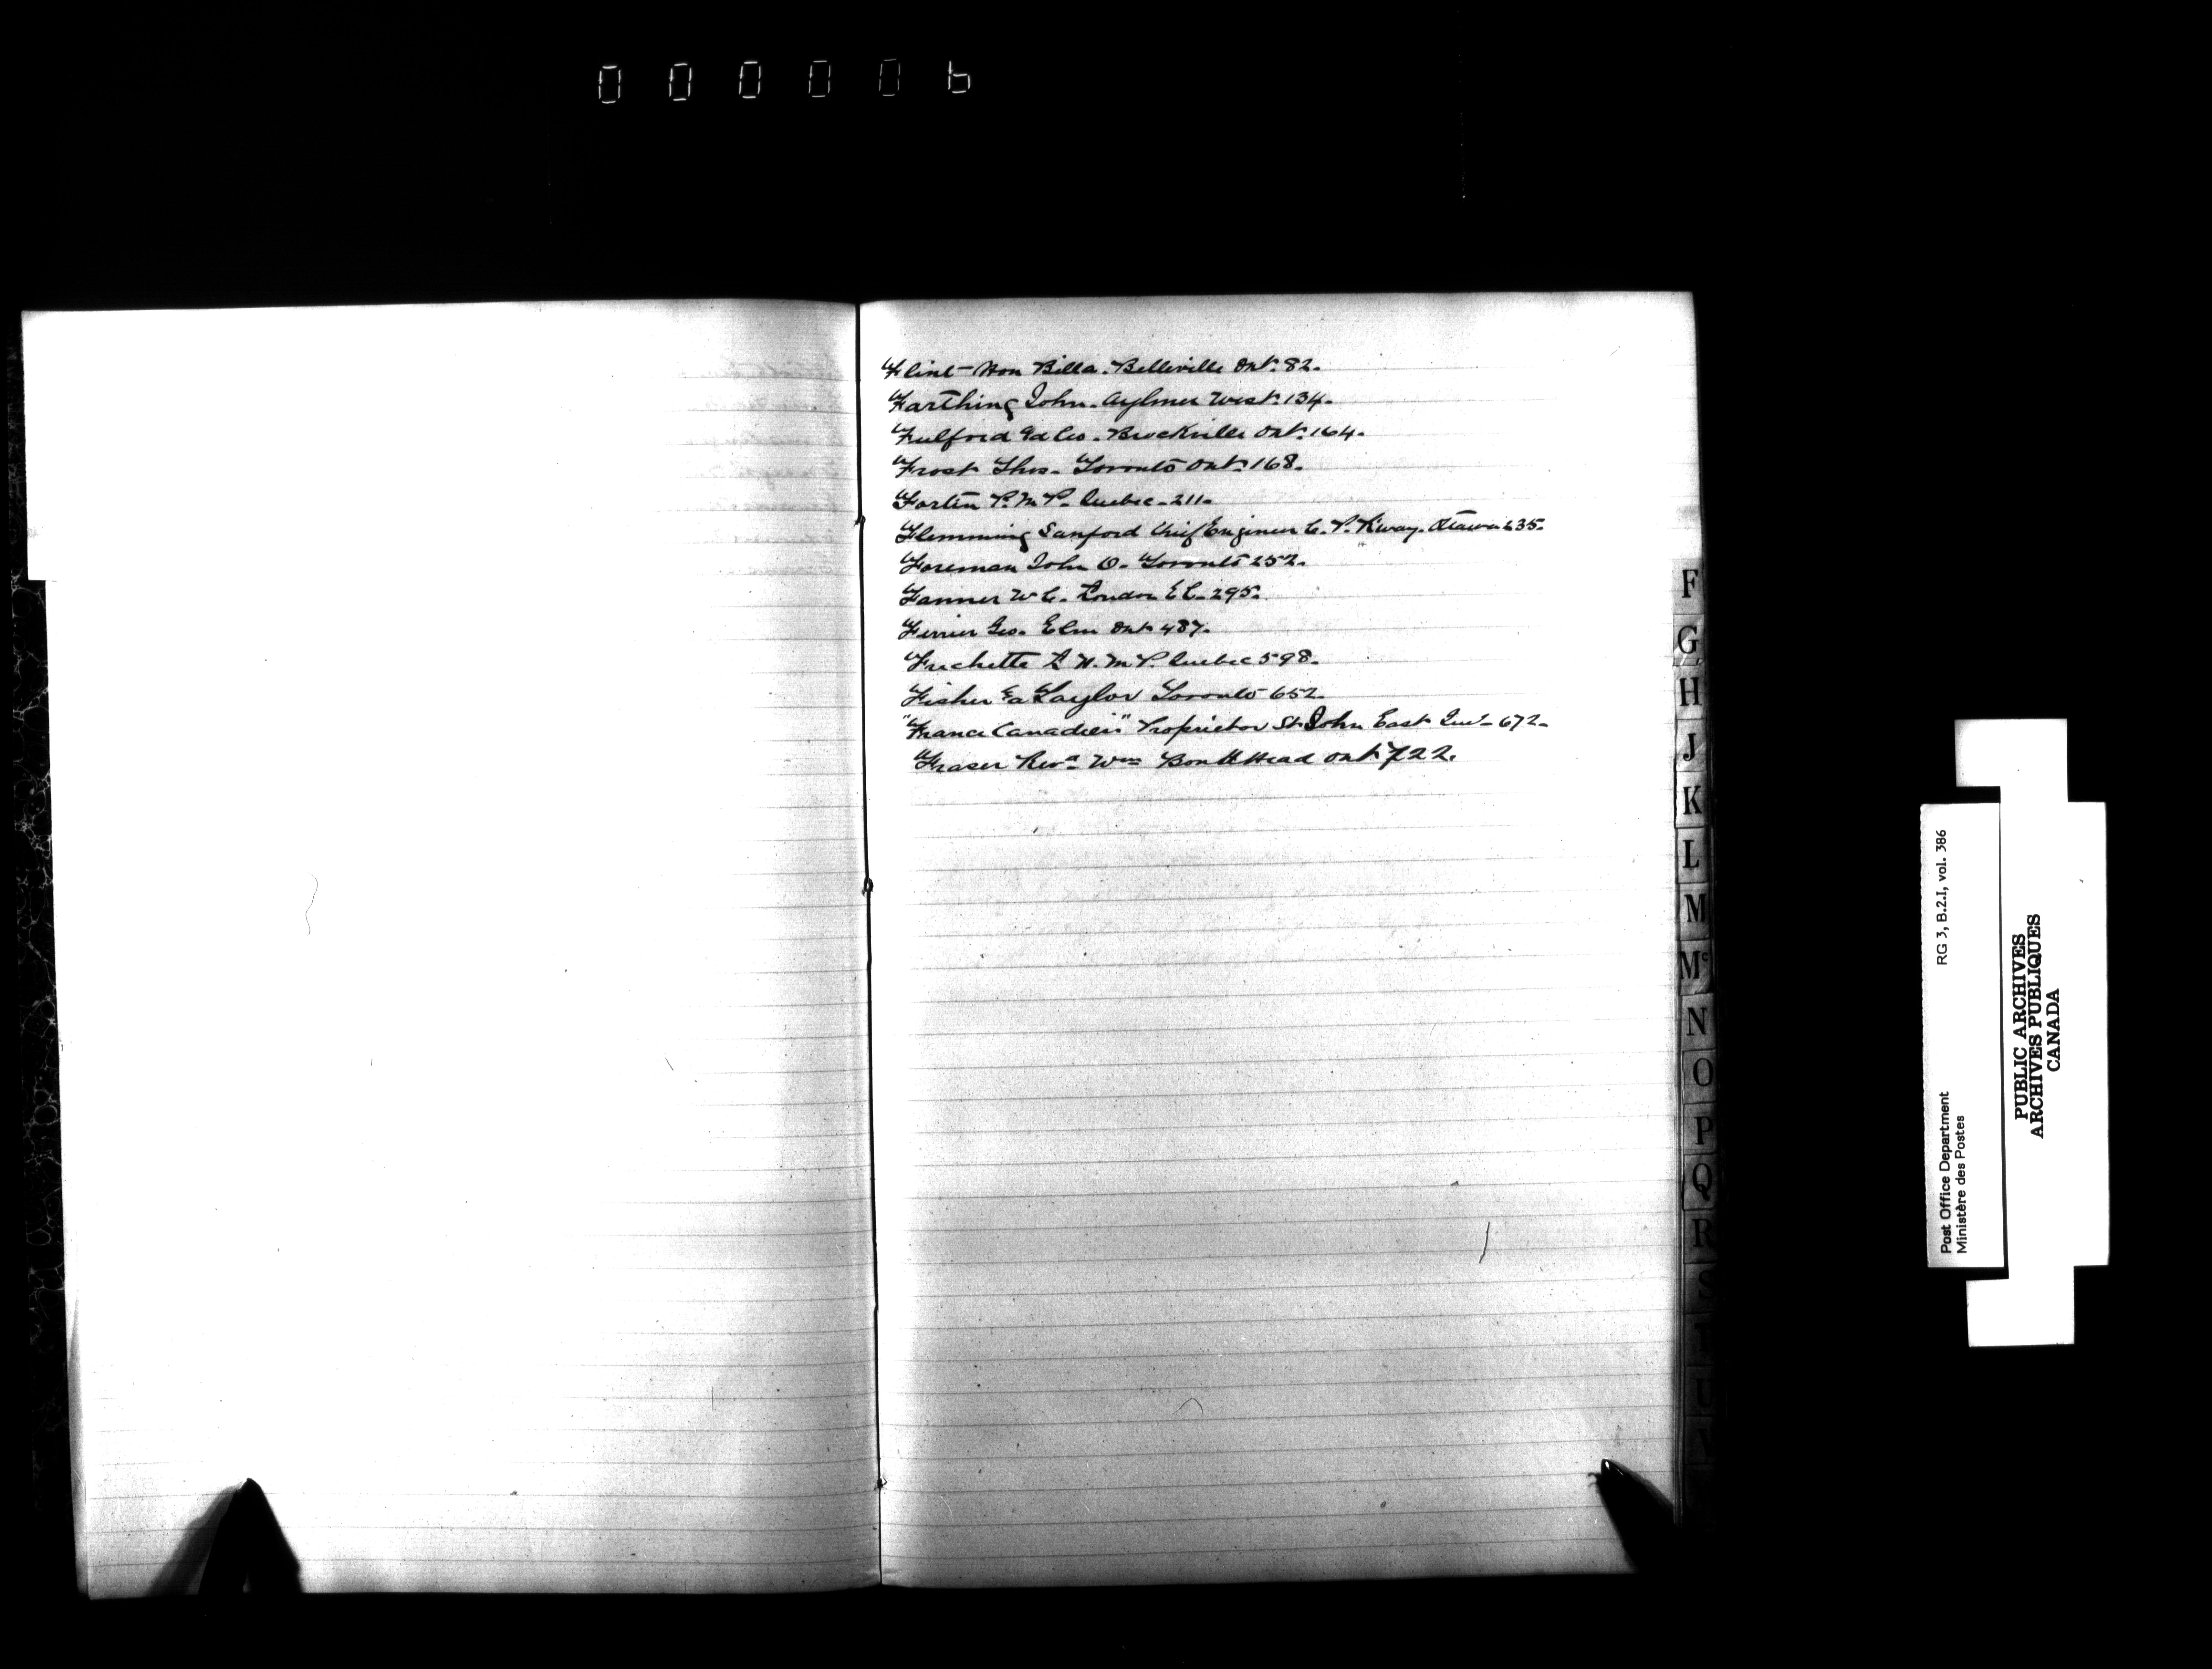 000006
Flint - Hon Billa. Belleville Ont. 82.
Farthing John. Aylmer West. 134.
Fulford & Co. Brockville Ont. 164.
Frost Thos. Toronto Ont. 168.
Fortin P. M.P. Quebec. 211.
Flemming Sanford Chief Engineer C. P. R'way. Ottawa 235.
Foreman John O. Toronto 252.
Fanner W C. London E C. 295.
Ferrier Geo. Elm Ont 487.
Frechette L H. M.P. Quebec 598.
Fisher & Taylor Toronto 652.
"Franco Canadien" Proprietor St John East Que. 672.
Fraser Revd. Wm Bond Head Ont 722.
F
G
H
J
K
L
M
Mc
N
O
P
Q
R
S
T
U
Post Office Department
Ministère des Postes
RG 3, B.2.I, vol. 386
PUBLIC ARCHIVES
ARCHIVES PUBLIQUES
CANADA